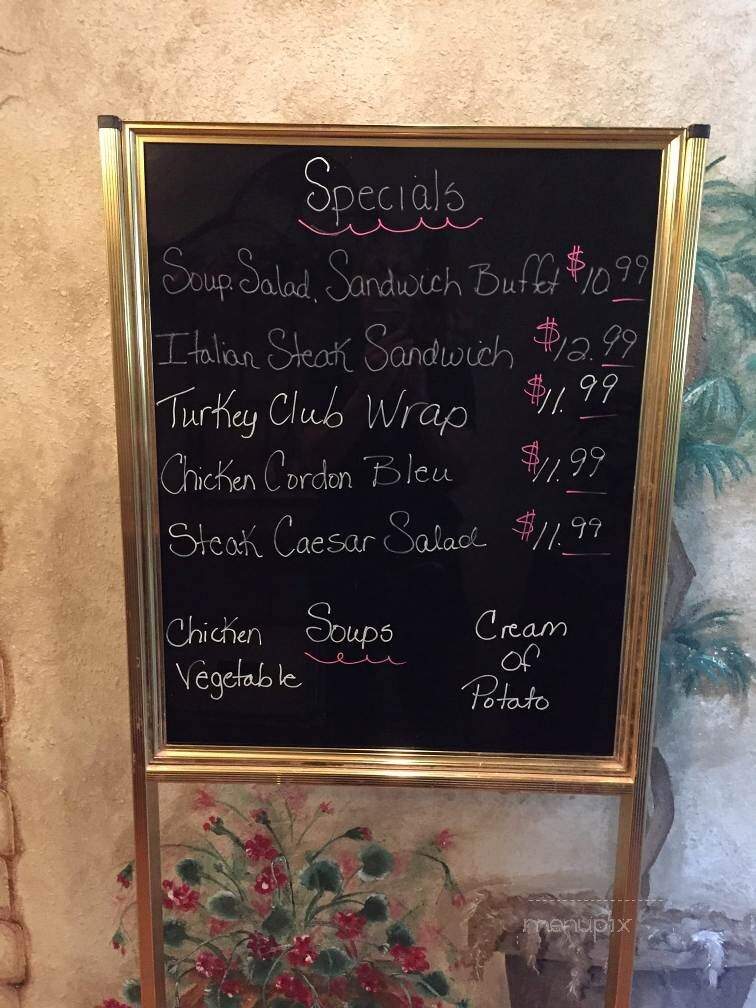 Specials
Soup. Salad. Sandwich Buffet $10.99
Italian Steak Sandwich $12.99
Turkey Club Wrap $11.99
Chicken Cordon Bleu $11.99
Steak Caesar Salad $11.99
Soups
Chicken
Vegetable
Cream
of
Potato
menupix